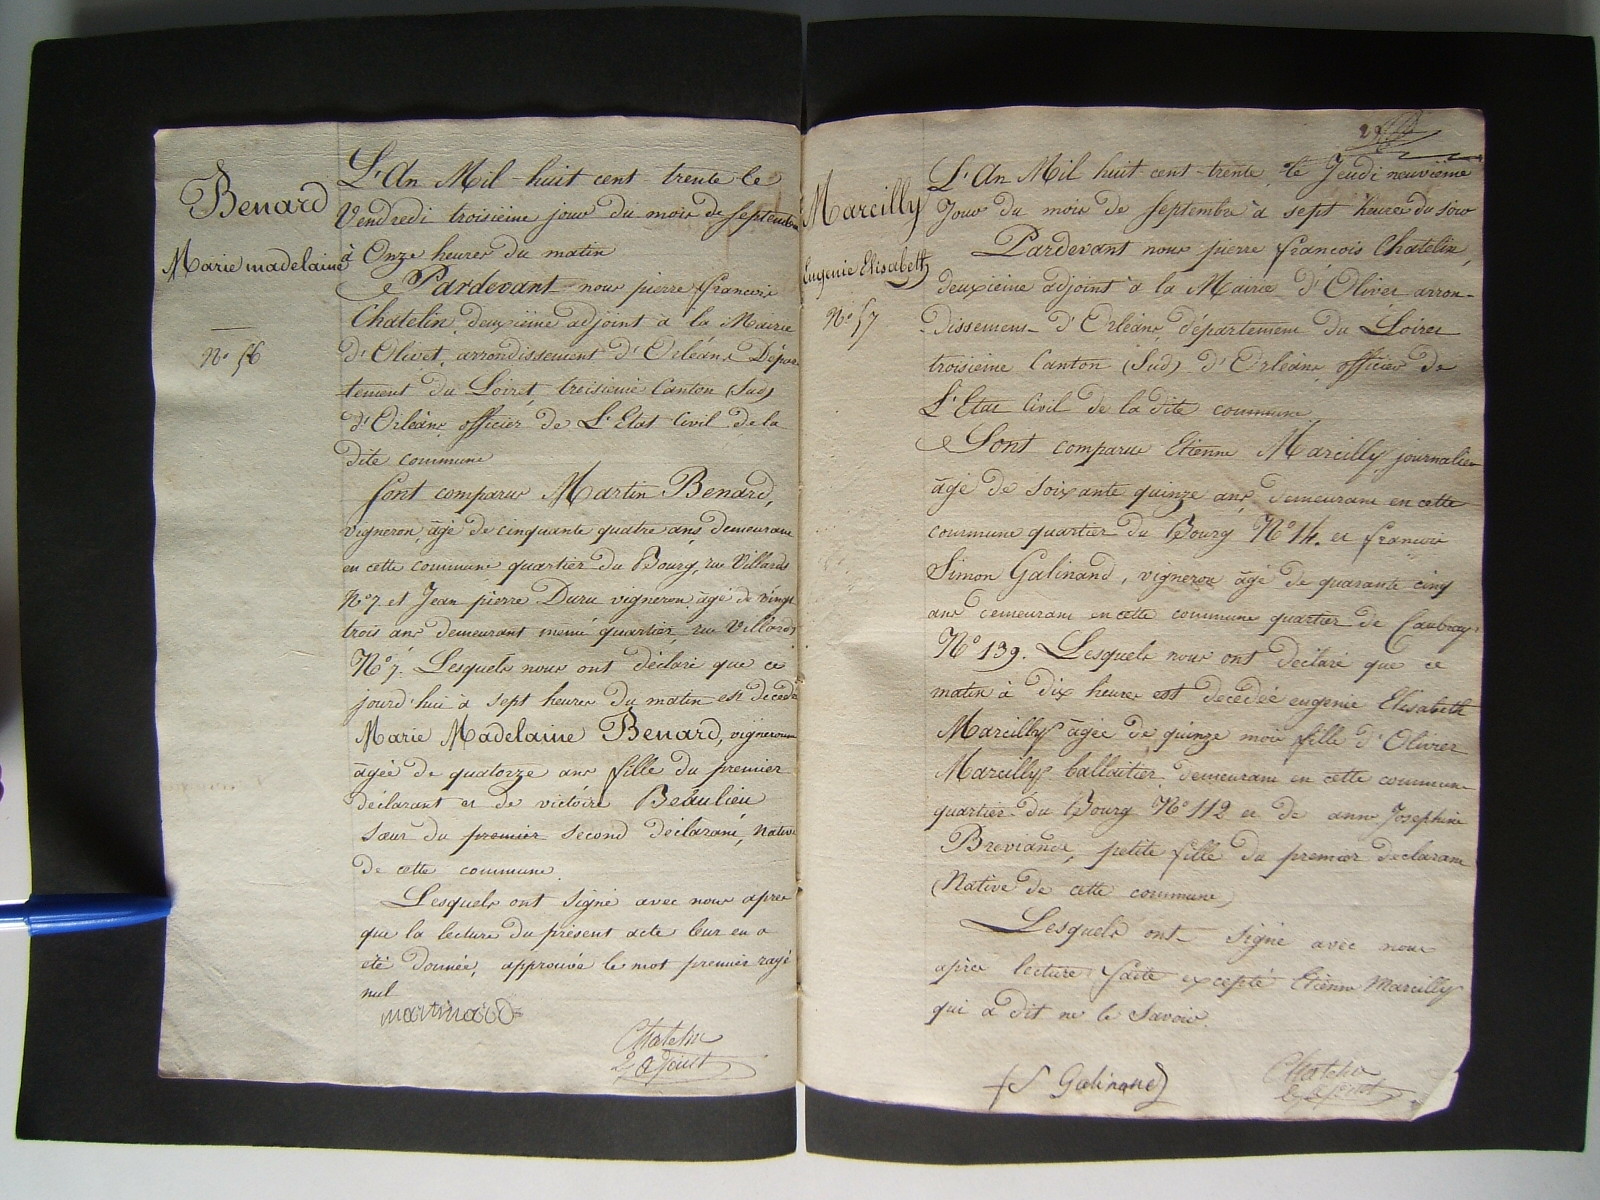 Benard
Marie madelaine
No. 56
L'An Mil huit cent trente le
Vendredi troisième jour du mois de septembre
à Onze heures du matin
Pardevant nous pierre francois
Chatelin, deuxième adjoint à la Mairie
d'Olivet, arrondissement d'Orléans Dépar
tement du Loiret, troisième Canton (Sud)
d'Orléans, officier de L'Etat Civil de la
dite commune
Sont comparus Martin Benard,
vigneron, âgé de cinquante quatre ans, demeurant
en cette commune quartier du Bourg, rue Villards
No. 7 et Jean pierre Duru vigneron âgé de vingt
trois ans demeurant même quartier rue Villards
No. 7. Lesquels nous ont déclaré que ce
jourd'hui à sept heures du matin est décédé
Marie Madelaine Benard, vigneronne
âgée de quatorze ans fille du premier
déclarant et de victoire Beaulieu
sœur du premier second déclarant, native
de cette commune.
Lesquels ont signé avec nous après
que la lecture du présent acte leur en a
été donnée, approuvé le mot premier rayé
nul
Chatelin
2 adjoint
Marcilly
Eugenie Elisabeth
No. 57
L'An Mil huit cent trente le Jeudi neuvième
Jour du mois de septembre à sept heures du soir
Pardevant nous pierre francois Chatelin,
deuxième adjoint à la Mairie d'Olivet arron-
dissement d'Orléans, département du Loiret
troisième Canton (Sud) d'Orléans officier de
L'Etat Civil de la dite commune
Sont comparus Etienne Marcilly, journalier
âgé de soixante quinze ans, demeurant en cette
commune quartier du Bourg No. 14. et francois
Simon Galinand, vigneron âgé de quarante cinq
ans demeurant en cette commune quartier de Caubray
No. 139. Lesquels nous ont déclaré que ce
matin à dix heures est décédée eugenie Elisabeth
Marcilly âgée de quinze mois fille d'Olivier
Marcilly demeurant en cette commune
quartier du Bourg No. 112 et de anne Josephine
petite fille du premier déclarant
(Native de cette commune)
Lesquels ont signé avec nous
après lecture faite excepté Etienne Marcilly
qui a dit ne le savoir.
f S Galinand
Chatelin
2 adjoint